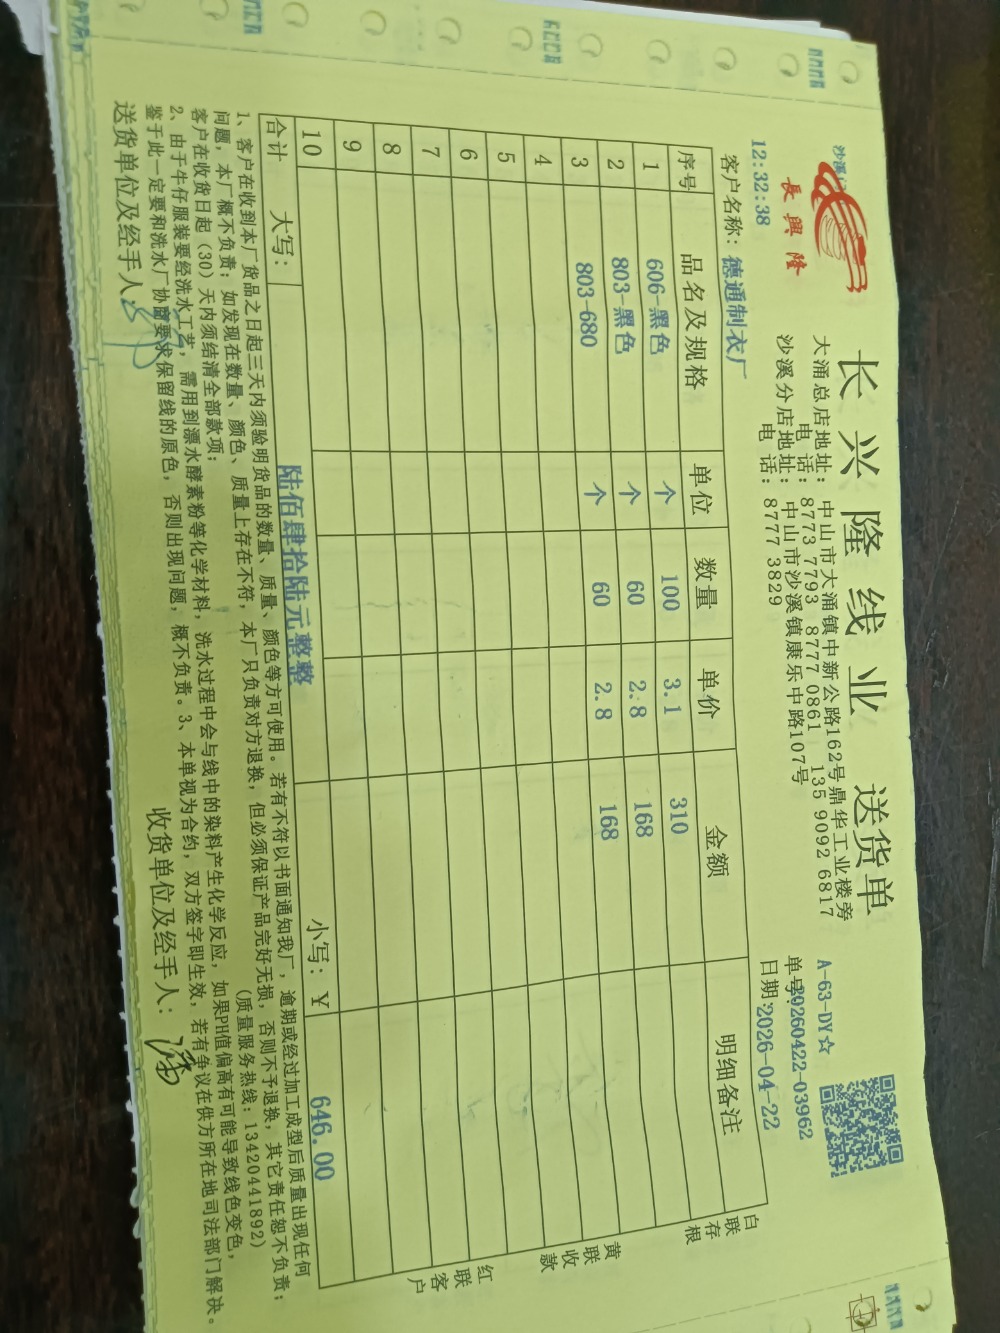 長興隆
长兴隆线业 送货单
大涌总店地址: 中山市大涌镇中新公路162号鼎华工业楼旁
电 话: 8773 7793 8777 0861 135 9092 6817
沙溪分店地址: 中山市沙溪镇康乐中路107号
电 话: 8777 3829
A-63-DY☆
单号:20260422-03962
12:32:38
日期:2026-04-22
客户名称: 德通制衣厂
序号 品名及规格 单位 数量 单价 金额 明细备注
1 606-黑色 个 100 3.1 310
2 803-黑色 个 60 2.8 168
3 803-680 个 60 2.8 168
4
5
6
7
8
9
10
合计 大写: 陆佰肆拾陆元整整 小写: ¥ 646.00
白联存根
黄联收款
红联客户
1、客户在收到本厂货品之日起三天内须验明货品的数量、质量、颜色等方可使用。若有不符以书面通知我厂，逾期或经过加工成型后质量出现任何
问题，本厂概不负责；如发现在数量、颜色、质量上存在不符，本厂只负责对方退换，但必须保证产品完好无损，否则不予退换，其它责任恕不负责；
客户在收货日起（30）天内须结清全部款项； （质量服务热线：13420441892）
2、由于牛仔服装要经洗水工艺，需用到漂水酵素粉等化学材料，洗水过程中会与线中的染料产生化学反应，如果PH值偏高有可能导致线色变色，
鉴于此一定要和洗水厂协商要求保留线的原色，否则出现问题，概不负责。3、本单视为合约，双方签字即生效，若有争议在供方所在地司法部门解决。
送货单位及经手人: 收货单位及经手人: 潘